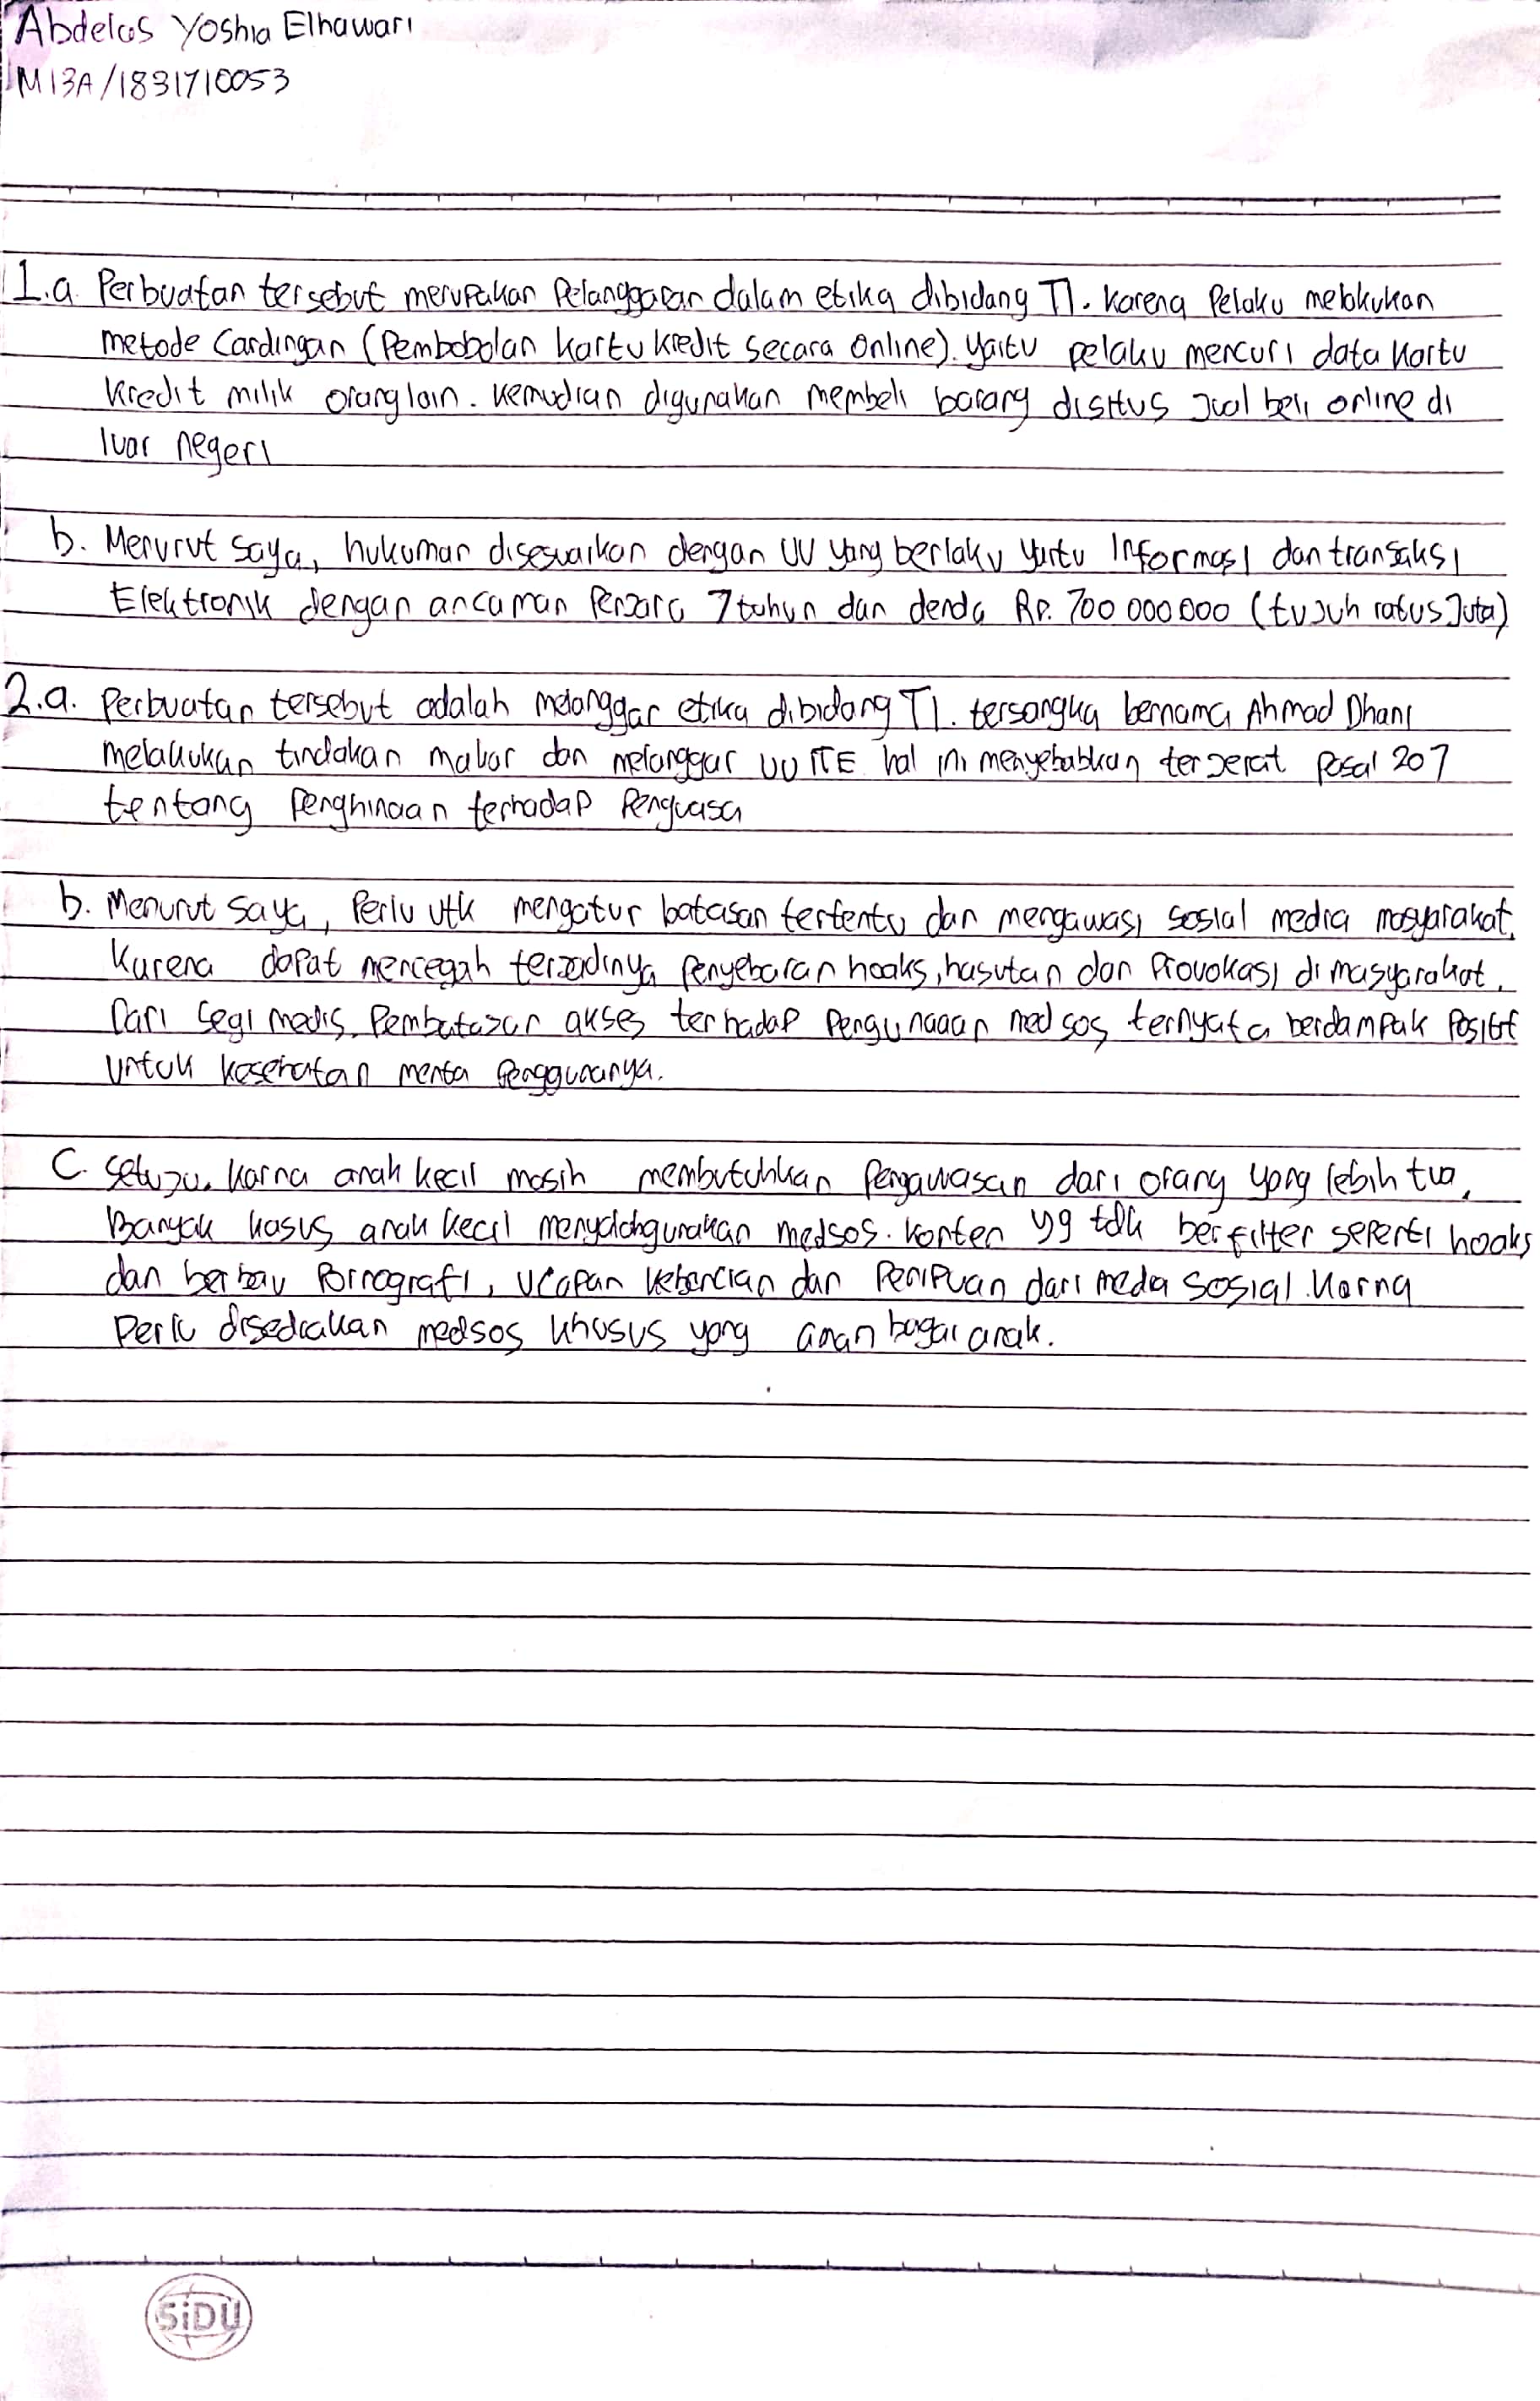 Abdelas Yoshia Elhawari
MI3A/1831710053
1.a Perbuatan tersebut merupakan Pelanggaran dalam etika dibidang TI. Karena Pelaku melakukan
metode Cardingan (Pembobolan kartu kredit secara online). yaitu pelaku mencuri data kartu
kredit milik orang lain. kemudian digunakan membeli barang disitus jual beli online di
luar negeri
b. Menurut saya, hukuman disesuaikan dengan UU yang berlaku yaitu Informasi dan transaksi
Elektronik dengan ancaman Penjara 7 tahun dan denda Rp. 700 000 000 (tujuh ratus Juta)
2.a. Perbuatan tersebut adalah melanggar etika dibidang TI. tersangka bernama Ahmad Dhani
melakukan tindakan makar dan melanggar UU ITE hal ini menyebabkan terjerat pasal 207
tentang Penghinaan terhadap Penguasa
b. Menurut saya, Perlu utk mengatur batasan tertentu dan mengawasi sosial media masyarakat.
Karena dapat mencegah terjadinya penyebaran hoaks, hasutan dan Provokasi di masyarakat.
Dari segi medis, Pembatasan akses terhadap Pengunaaan medsos ternyata berdampak Positif
untuk kesehatan menta Penggunanya.
C. setuju. karna anak kecil masih membutuhkan Pengawasan dari orang yang lebih tua.
Banyak kasus anak kecil menyalahgunakan medsos. konten yg tdk berfilter seperti hoaks
dan berbau Pornografi, ucapan kebencian dan Penipuan dari media sosial. Karna
Perlu disediakan medsos khusus yang aman bagai anak.
SiDU